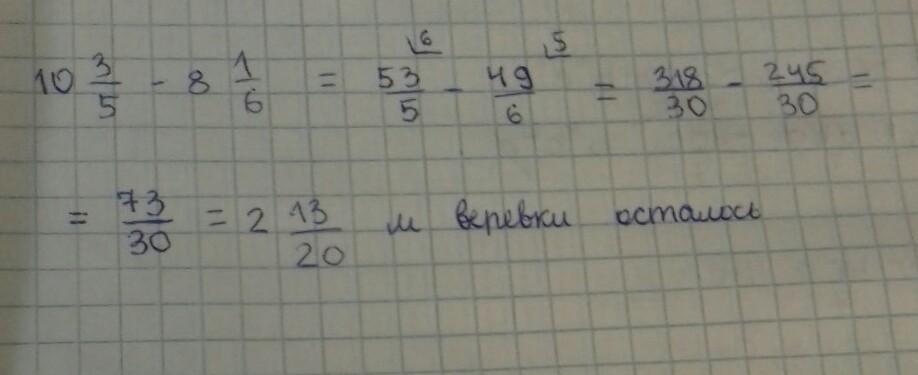 10 3/5 - 8 1/6 = 53/5 ⌞6 - 49/6 ⌞5 = 318/30 - 245/30 =
= 73/30 = 2 13/20 м веревки осталось